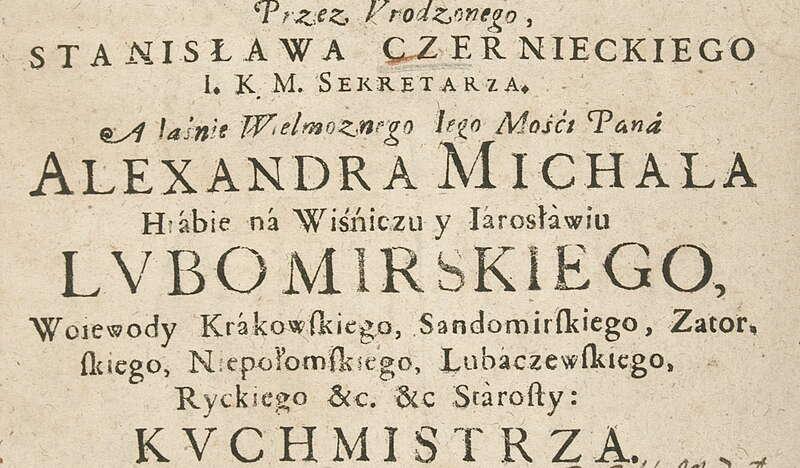 Przez Vrodzonego,
STANISŁAWA CZERNIECKIEGO
I. K. M. SEKRETARZA.
A Iaśnie Wielmożnego Iego Mośći Paná
ALEXANDRA MICHALA
Hrábie ná Wiśńiczu y Iárosłàwiu
LVBOMIRSKIEGO,
Woiewody Krákowſkiego, Sandomirſkiego, Zator,
ſkiego, Niepołomſkiego, Lubáczewſkiego,
Ryckiego &c. &c Stàroſty:
KVCHMISTRZA.